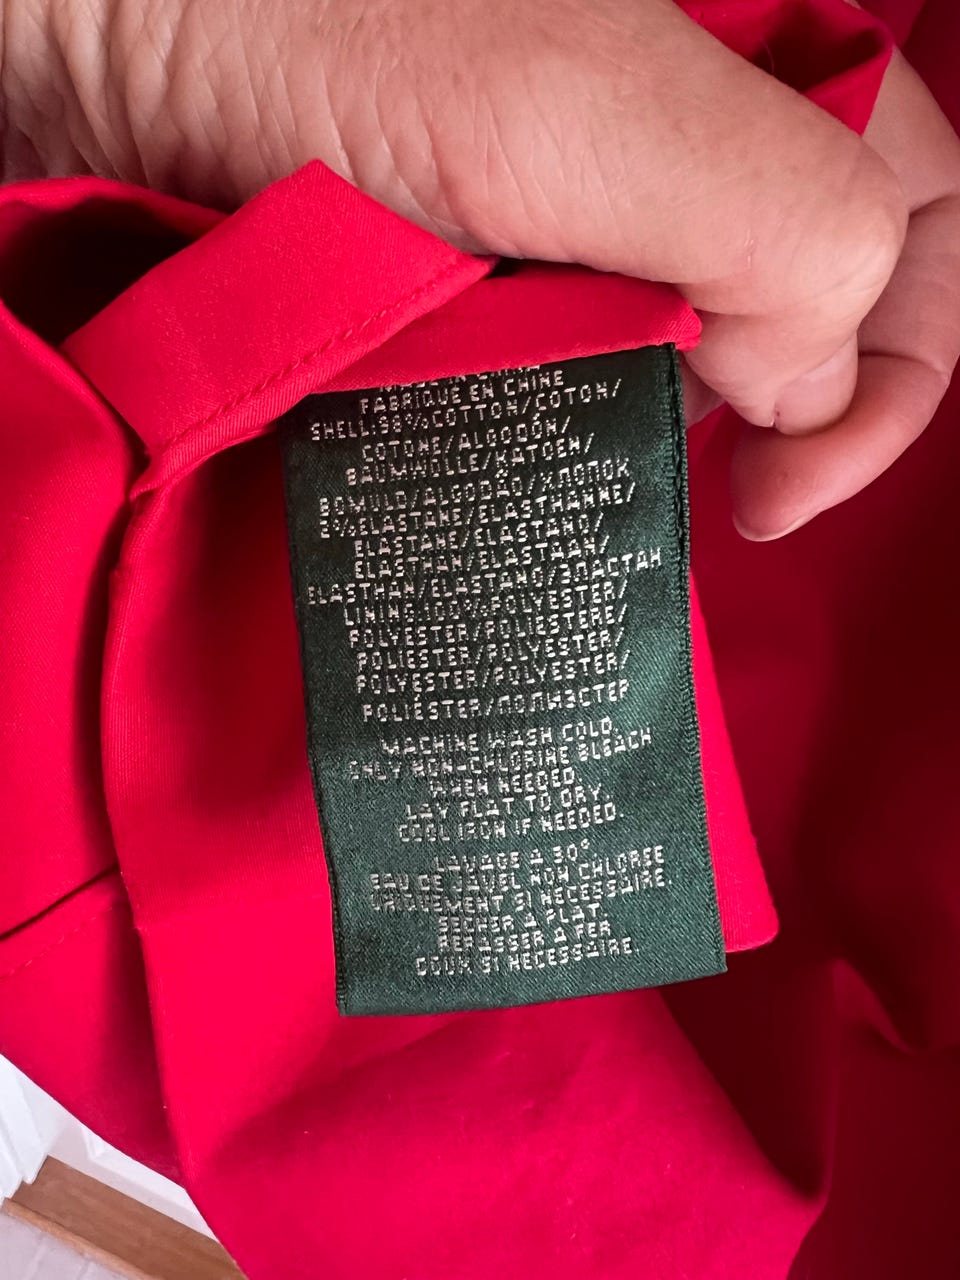 MADE IN CHINA
FABRIQUE EN CHINE
SHELL:98%COTTON/COTON/
COTONE/ALGODÓN/
BAUMWOLLE/KATOEN/
BOMULD/ALGODÃO/ХЛОПОК
2%ELASTANE/ELASTHANNE/
ELASTANE/ELASTANO/
ELASTHAN/ELASTAAN/
ELASTHAN/ELASTANO/ЭЛАСТАН
LINING:100%POLYESTER/
POLYESTER/POLIESTERE/
POLIESTER/POLYESTER/
POLYESTER/POLYESTER/
POLIÉSTER/ПОЛИЭСТЕР
MACHINE WASH COLD.
ONLY NON-CHLORINE BLEACH
WHEN NEEDED.
LAY FLAT TO DRY.
COOL IRON IF NEEDED.
LAVAGE A 30°
EAU DE JAVEL NON CHLORSE
UNIQUEMENT SI NECESSAIRE.
SECHER A PLAT.
REPASSER A FER
DOUX SI NECESSAIRE.